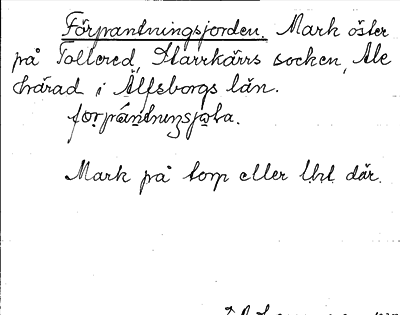 Förpantningsjorden. Mark öster
på Tollered, Starrkärrs socken, Ale
härad i Älfsborgs län.
Mark på torp eller lht där.